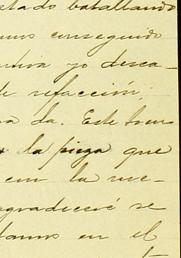 tado batallando
mos conseguido
yo desea-
de refacción;
da. Este buen
la pieza que
con la me-
agradeceré se
tamos en el